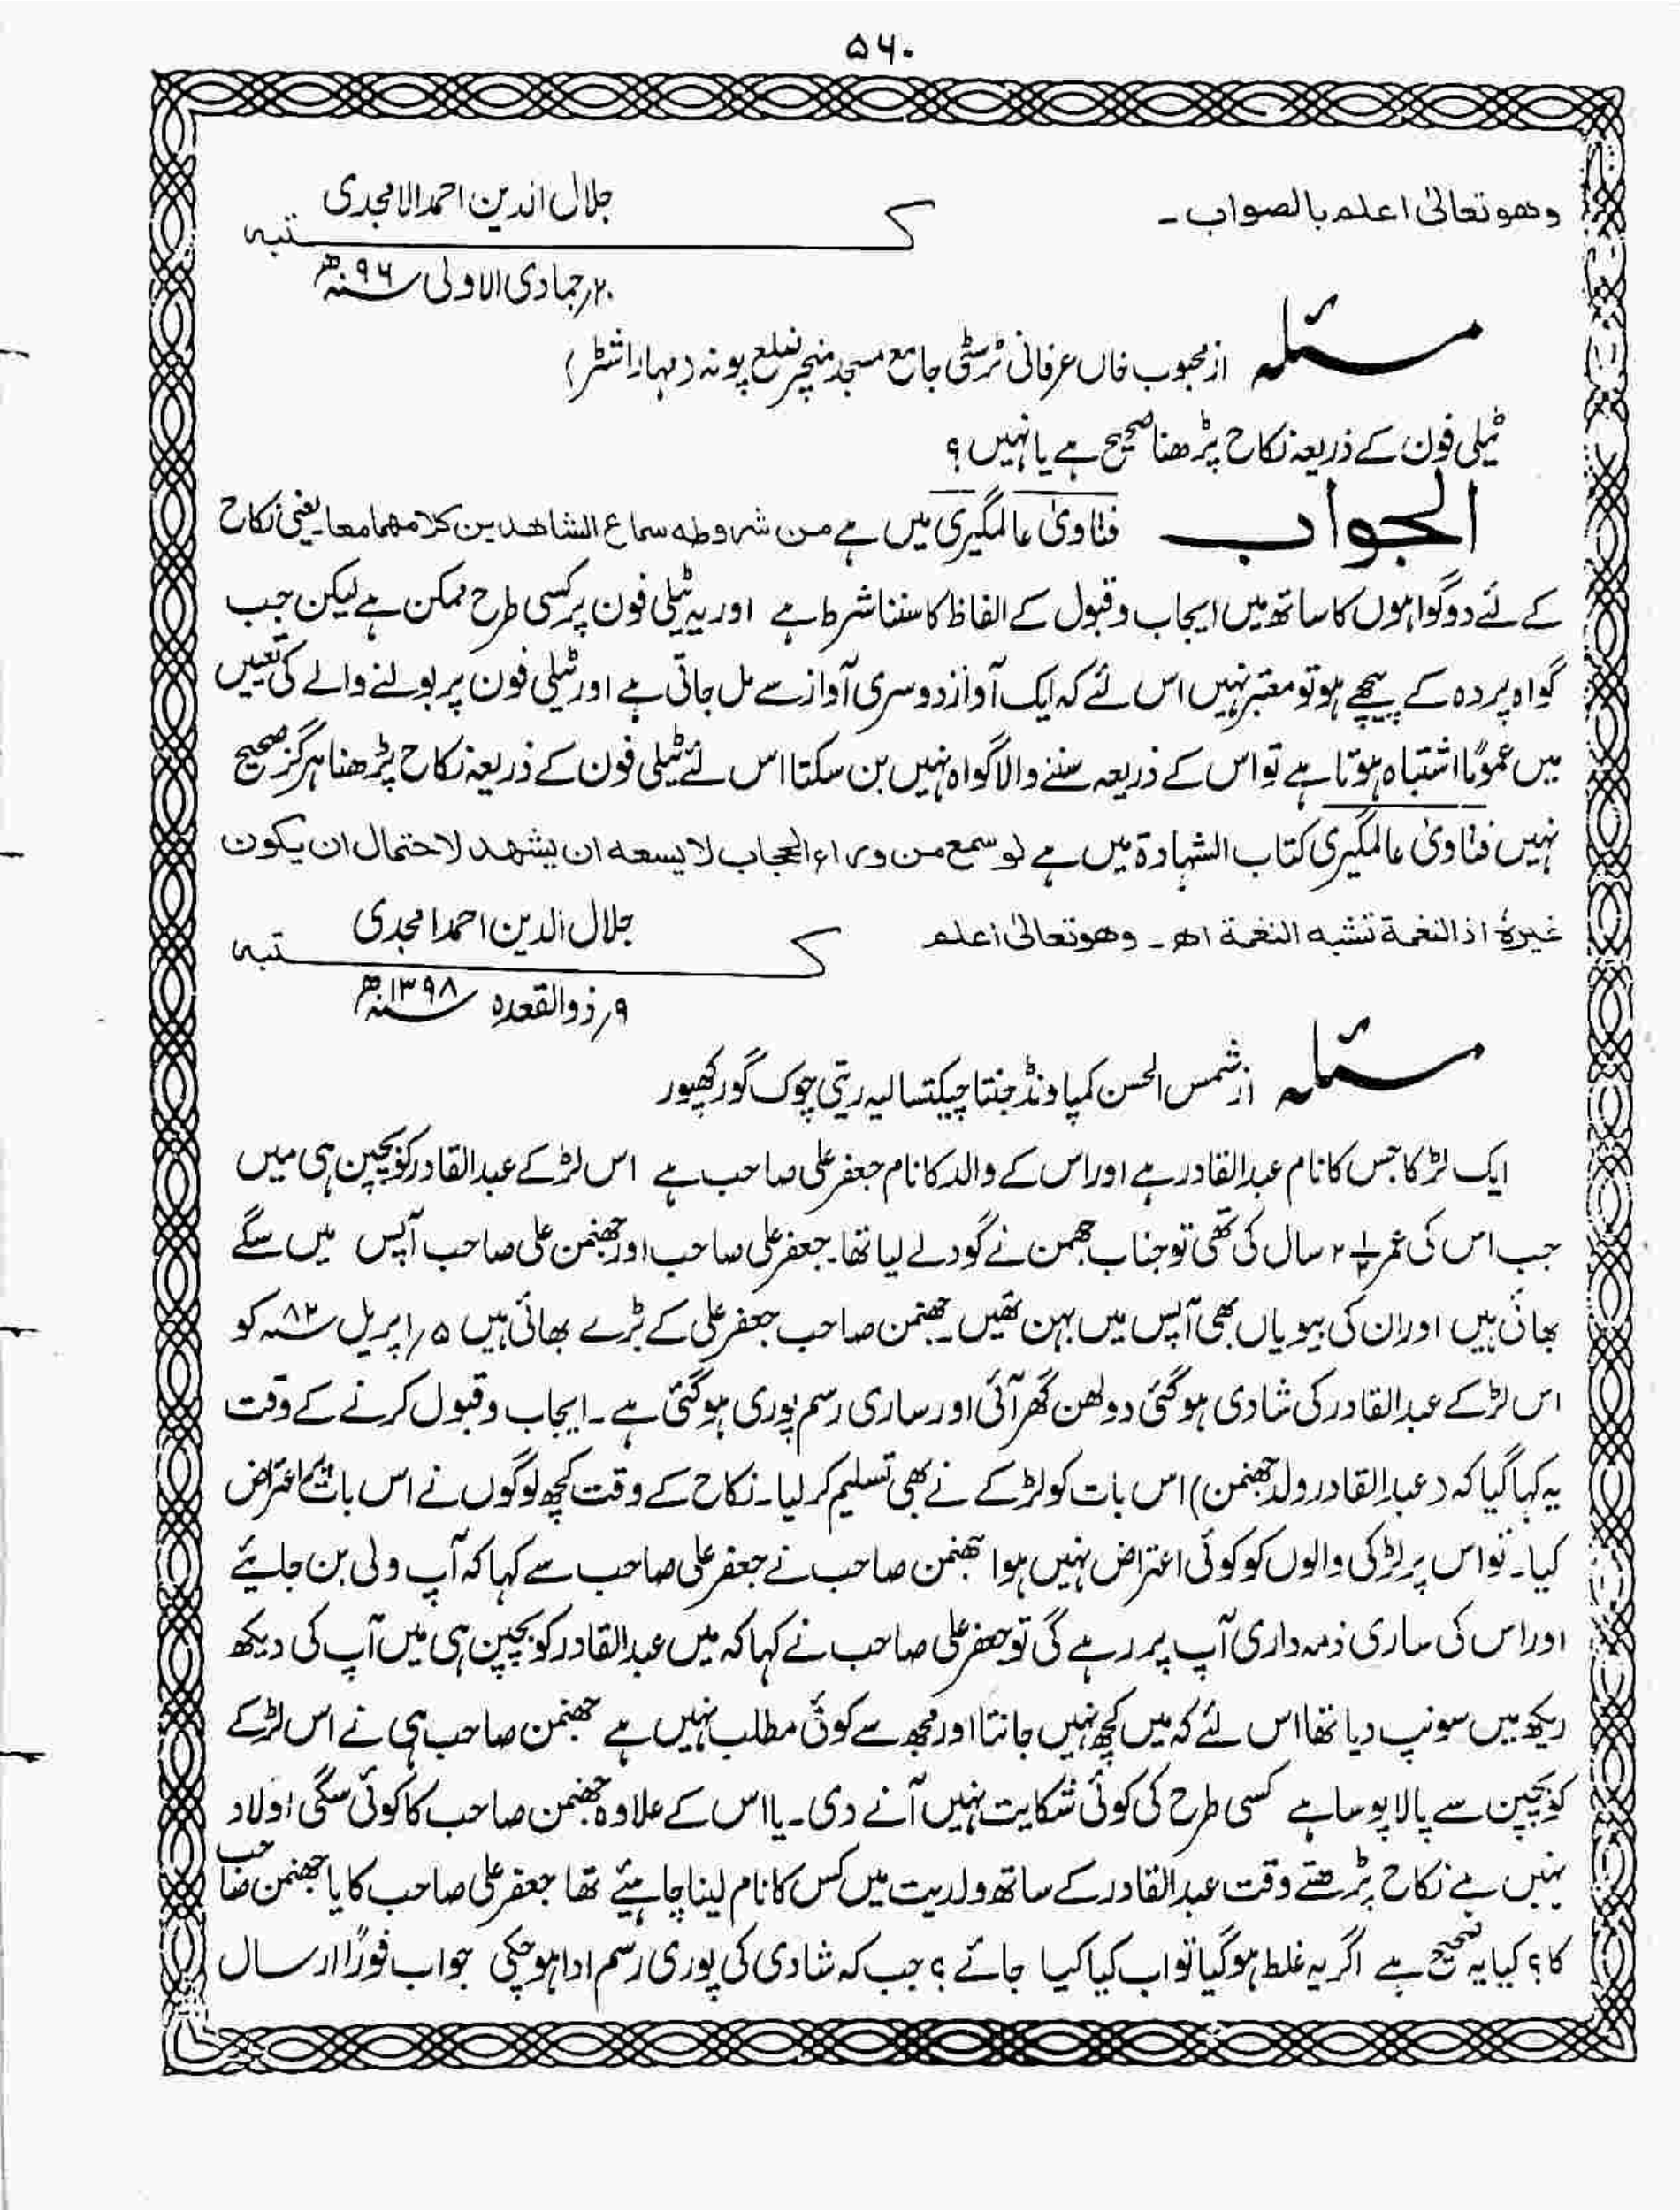 ۵۶۰
وھو تعالیٰ اعلم بالصواب۔
جلال الدین احمد الامجدی
کتبہ
۲۰؍جمادی الاولی سنہ ۹۶ھ
مسئلہ از محبوب خاں عرفانی ٹرسٹی جامع مسجد منچر ضلع پونہ (مہاراشٹر)
ٹیلی فون کے ذریعہ نکاح پڑھنا صحیح ہے یا نہیں؟
الجواب فتاویٰ عالمگیری میں ہے من شروطہ سماع الشاھدین کلامھما معا یعنی نکاح
کے لئے دو گواہوں کا ساتھ میں ایجاب وقبول کے الفاظ کا سننا شرط ہے اور یہ ٹیلی فون پر کسی طرح ممکن ہے لیکن جب
گواہ پردہ کے پیچھے ہو تو معتبر نہیں اس لئے کہ ایک آواز دوسری آواز سے مل جاتی ہے اور ٹیلی فون پر بولنے والے کی تعیین
میں عمومًا اشتباہ ہوتا ہے تو اس کے ذریعہ سننے والا گواہ نہیں بن سکتا اس لئے ٹیلی فون کے ذریعہ نکاح پڑھنا ہرگز صحیح
نہیں فتاویٰ عالمگیری کتاب الشہادۃ میں ہے لو سمع من وراء الحجاب لا یسعہ ان یشھد لاحتمال ان یکون
غیرہٗ اذ النغمۃ تشبہ النغمۃ اھ۔ وھو تعالیٰ اعلم
جلال الدین احمد امجدی
کتبہ
۹؍ ذوالقعدہ سنہ ۱۳۹۸ھ
مسئلہ از شمس الحسن کمپاونڈ جنتا چیکتسالیہ ریتی چوک گورکھپور
ایک لڑکا جس کا نام عبدالقادر ہے اور اس کے والد کا نام جعفر علی صاحب ہے اس لڑکے عبدالقادر کو بچپن ہی میں
جب اس کی عمر ۲ ۱/۲ سال کی تھی تو جناب جھمن نے گود لے لیا تھا۔ جعفر علی صاحب اور جھنمن علی صاحب آپس میں سگے
بھائی ہیں اور ان کی بیویاں بھی آپس میں بہن تھیں۔ جھنمن صاحب جعفر علی کے بڑے بھائی ہیں ۵؍اپریل سنہ ۸۲ کو
اس لڑکے عبدالقادر کی شادی ہو گئی دولھن گھر آئی اور ساری رسم پوری ہو گئی ہے۔ ایجاب وقبول کرنے کے وقت
یہ کہا گیا کہ (عبدالقادر ولد جھنمن) اس بات کو لڑکے نے بھی تسلیم کر لیا۔ نکاح کے وقت کچھ لوگوں نے اس بات اعتراض
کیا۔ تو اس پر لڑکی والوں کو کوئی اعتراض نہیں ہوا جھنمن صاحب نے جعفر علی صاحب سے کہا کہ آپ ولی بن جایئے
اور اس کی ساری ذمہ داری آپ پر رہے گی تو جعفر علی صاحب نے کہا کہ میں عبدالقادر کو بچپن ہی میں آپ کی دیکھ
ریکھ میں سونپ دیا تھا اس لئے کہ میں کچھ نہیں جانتا اور مجھ سے کوئی مطلب نہیں ہے جھنمن صاحب ہی نے اس لڑکے
کو بچپن سے پالا پوسا ہے کسی طرح کی کوئی شکایت نہیں آنے دی۔ یا اس کے علاوہ جھنمن صاحب کا کوئی سگی اولاد
نہیں ہے نکاح پڑھتے وقت عبدالقادر کے ساتھ ولدیت میں کس کا نام لینا چاہیئے تھا جعفر علی صاحب کا یا جھنمن صاحب
کا؟ کیا یہ صحیح ہے اگر یہ غلط ہو گیا تو اب کیا کیا جائے؟ جب کہ شادی کی پوری رسم ادا ہو چکی جواب فورًا ارسال